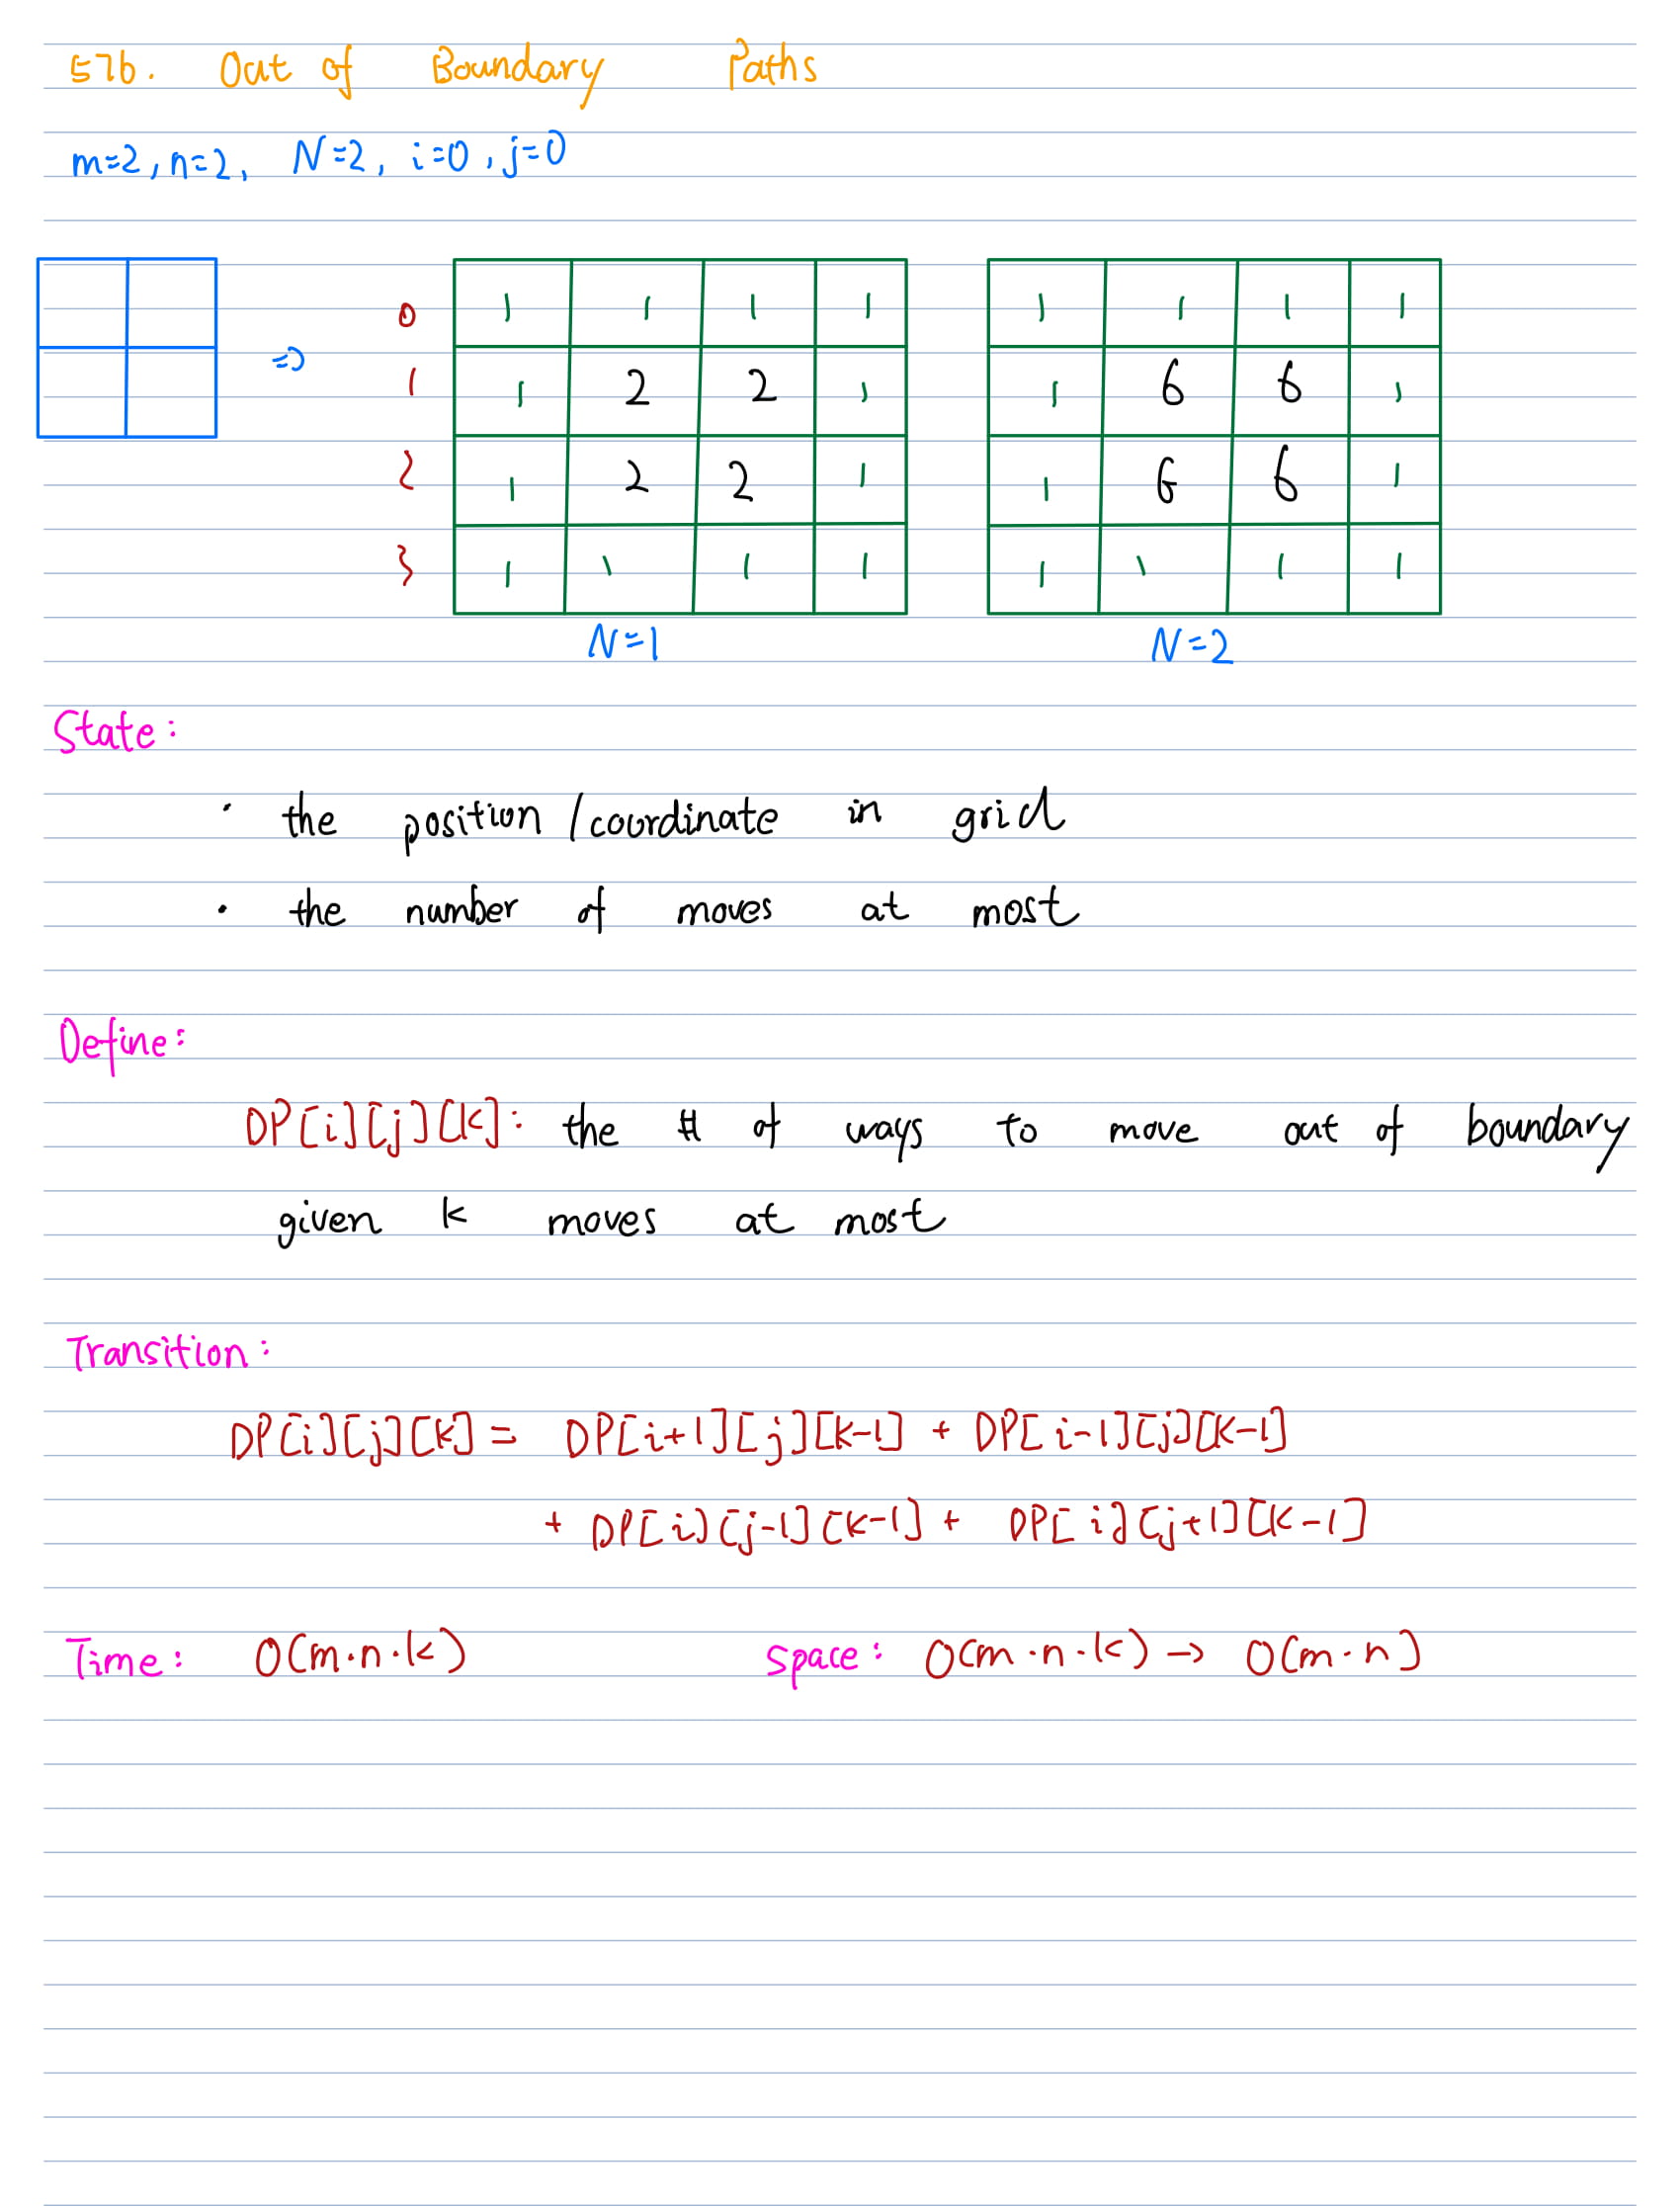 576. Out of Boundary Paths
m=2, n=2, N=2, i=0, j=0
⇒
0 1 1 1 1 1 1 1 1
1 1 2 2 1 1 6 6 1
2 1 2 2 1 1 6 6 1
3 1 1 1 1 1 1 1 1
N=1 N=2
State:
· the position/coordinate in grid
· the number of moves at most
Define:
DP[i][j][k]: the # of ways to move out of boundary
given k moves at most
Transition:
DP[i][j][k] = DP[i+1][j][k-1] + DP[i-1][j][k-1]
+ DP[i][j-1][k-1] + DP[i][j+1][k-1]
Time: O(m·n·k) space: O(m·n·k) → O(m·n)